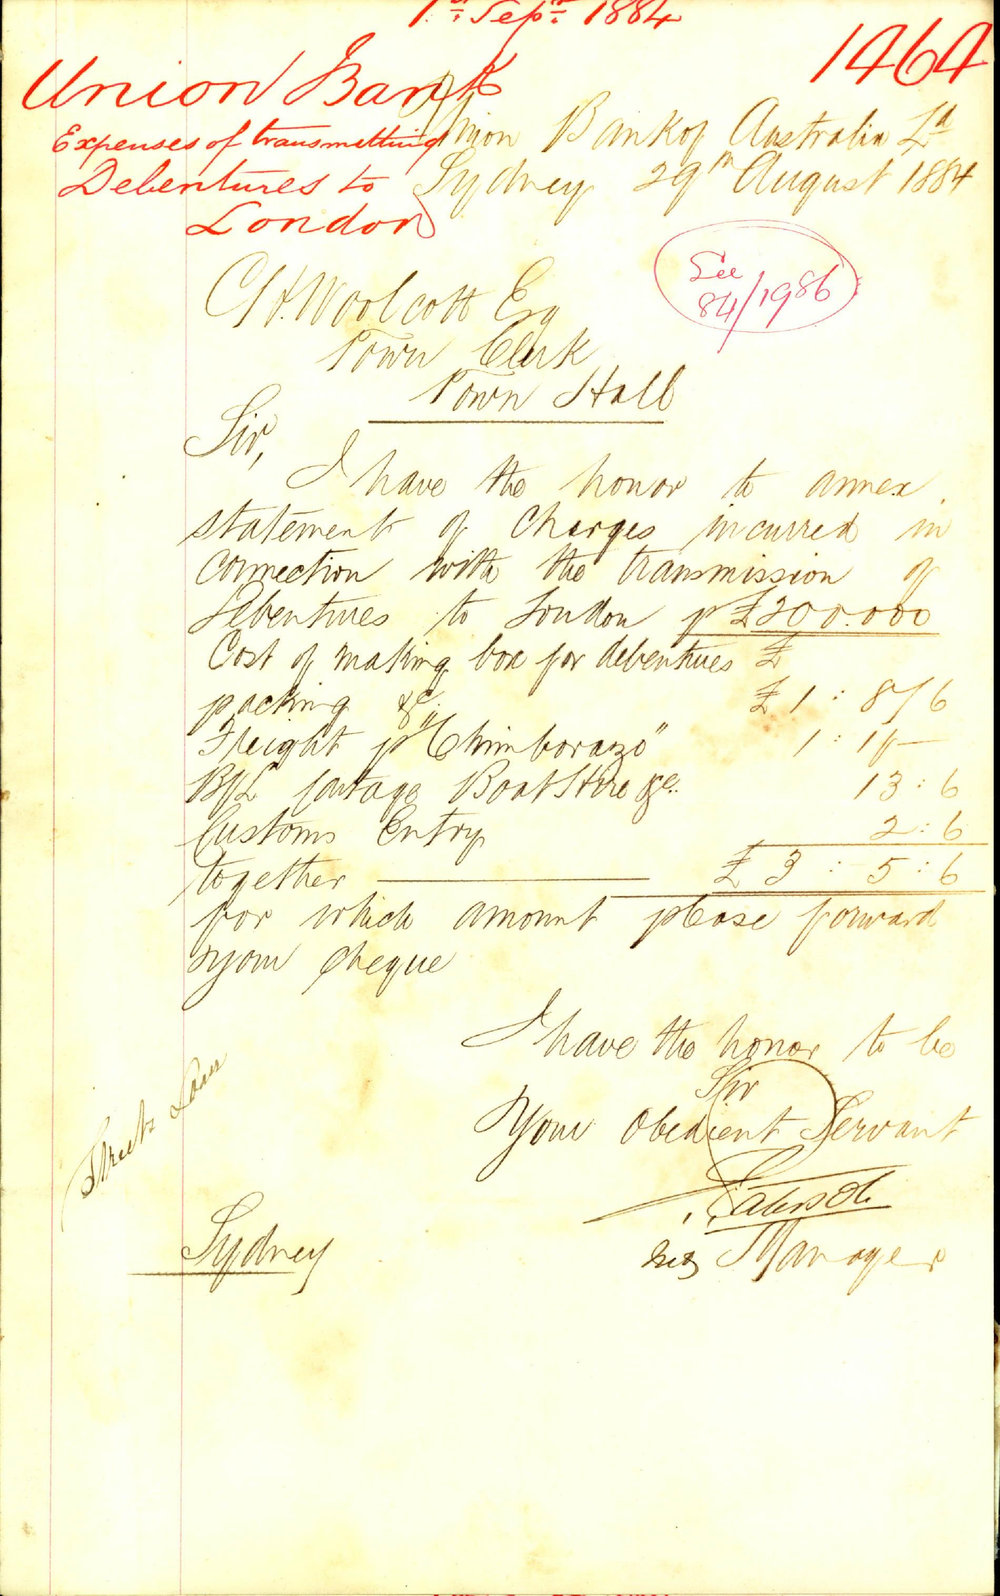 1st Sept. 1884
1464
Union Bank
Expenses of transmitting
Debentures to
London
Union Bank of Australia Ld
Sydney 29th August 1884
See
84/1986
C H Woolcott Esq
Town Clerk
Town Hall
Sir,
I have the honor to annex
statement of Charges incurred in
connection with the transmission of
Debentures to London p £200.000
Cost of making box for debentures £
packing &c. £1 : 8/6
Freight p "Chimborazo" 1 : 1/-
B/L portage Boat Hire &c. 13 : 6
Customs Entry 2 : 6
together £3 : 5 : 6
for which amount please forward
your cheque
I have the honor to be
Sir
Your Obedient Servant
Manager
Streets Loan
Sydney